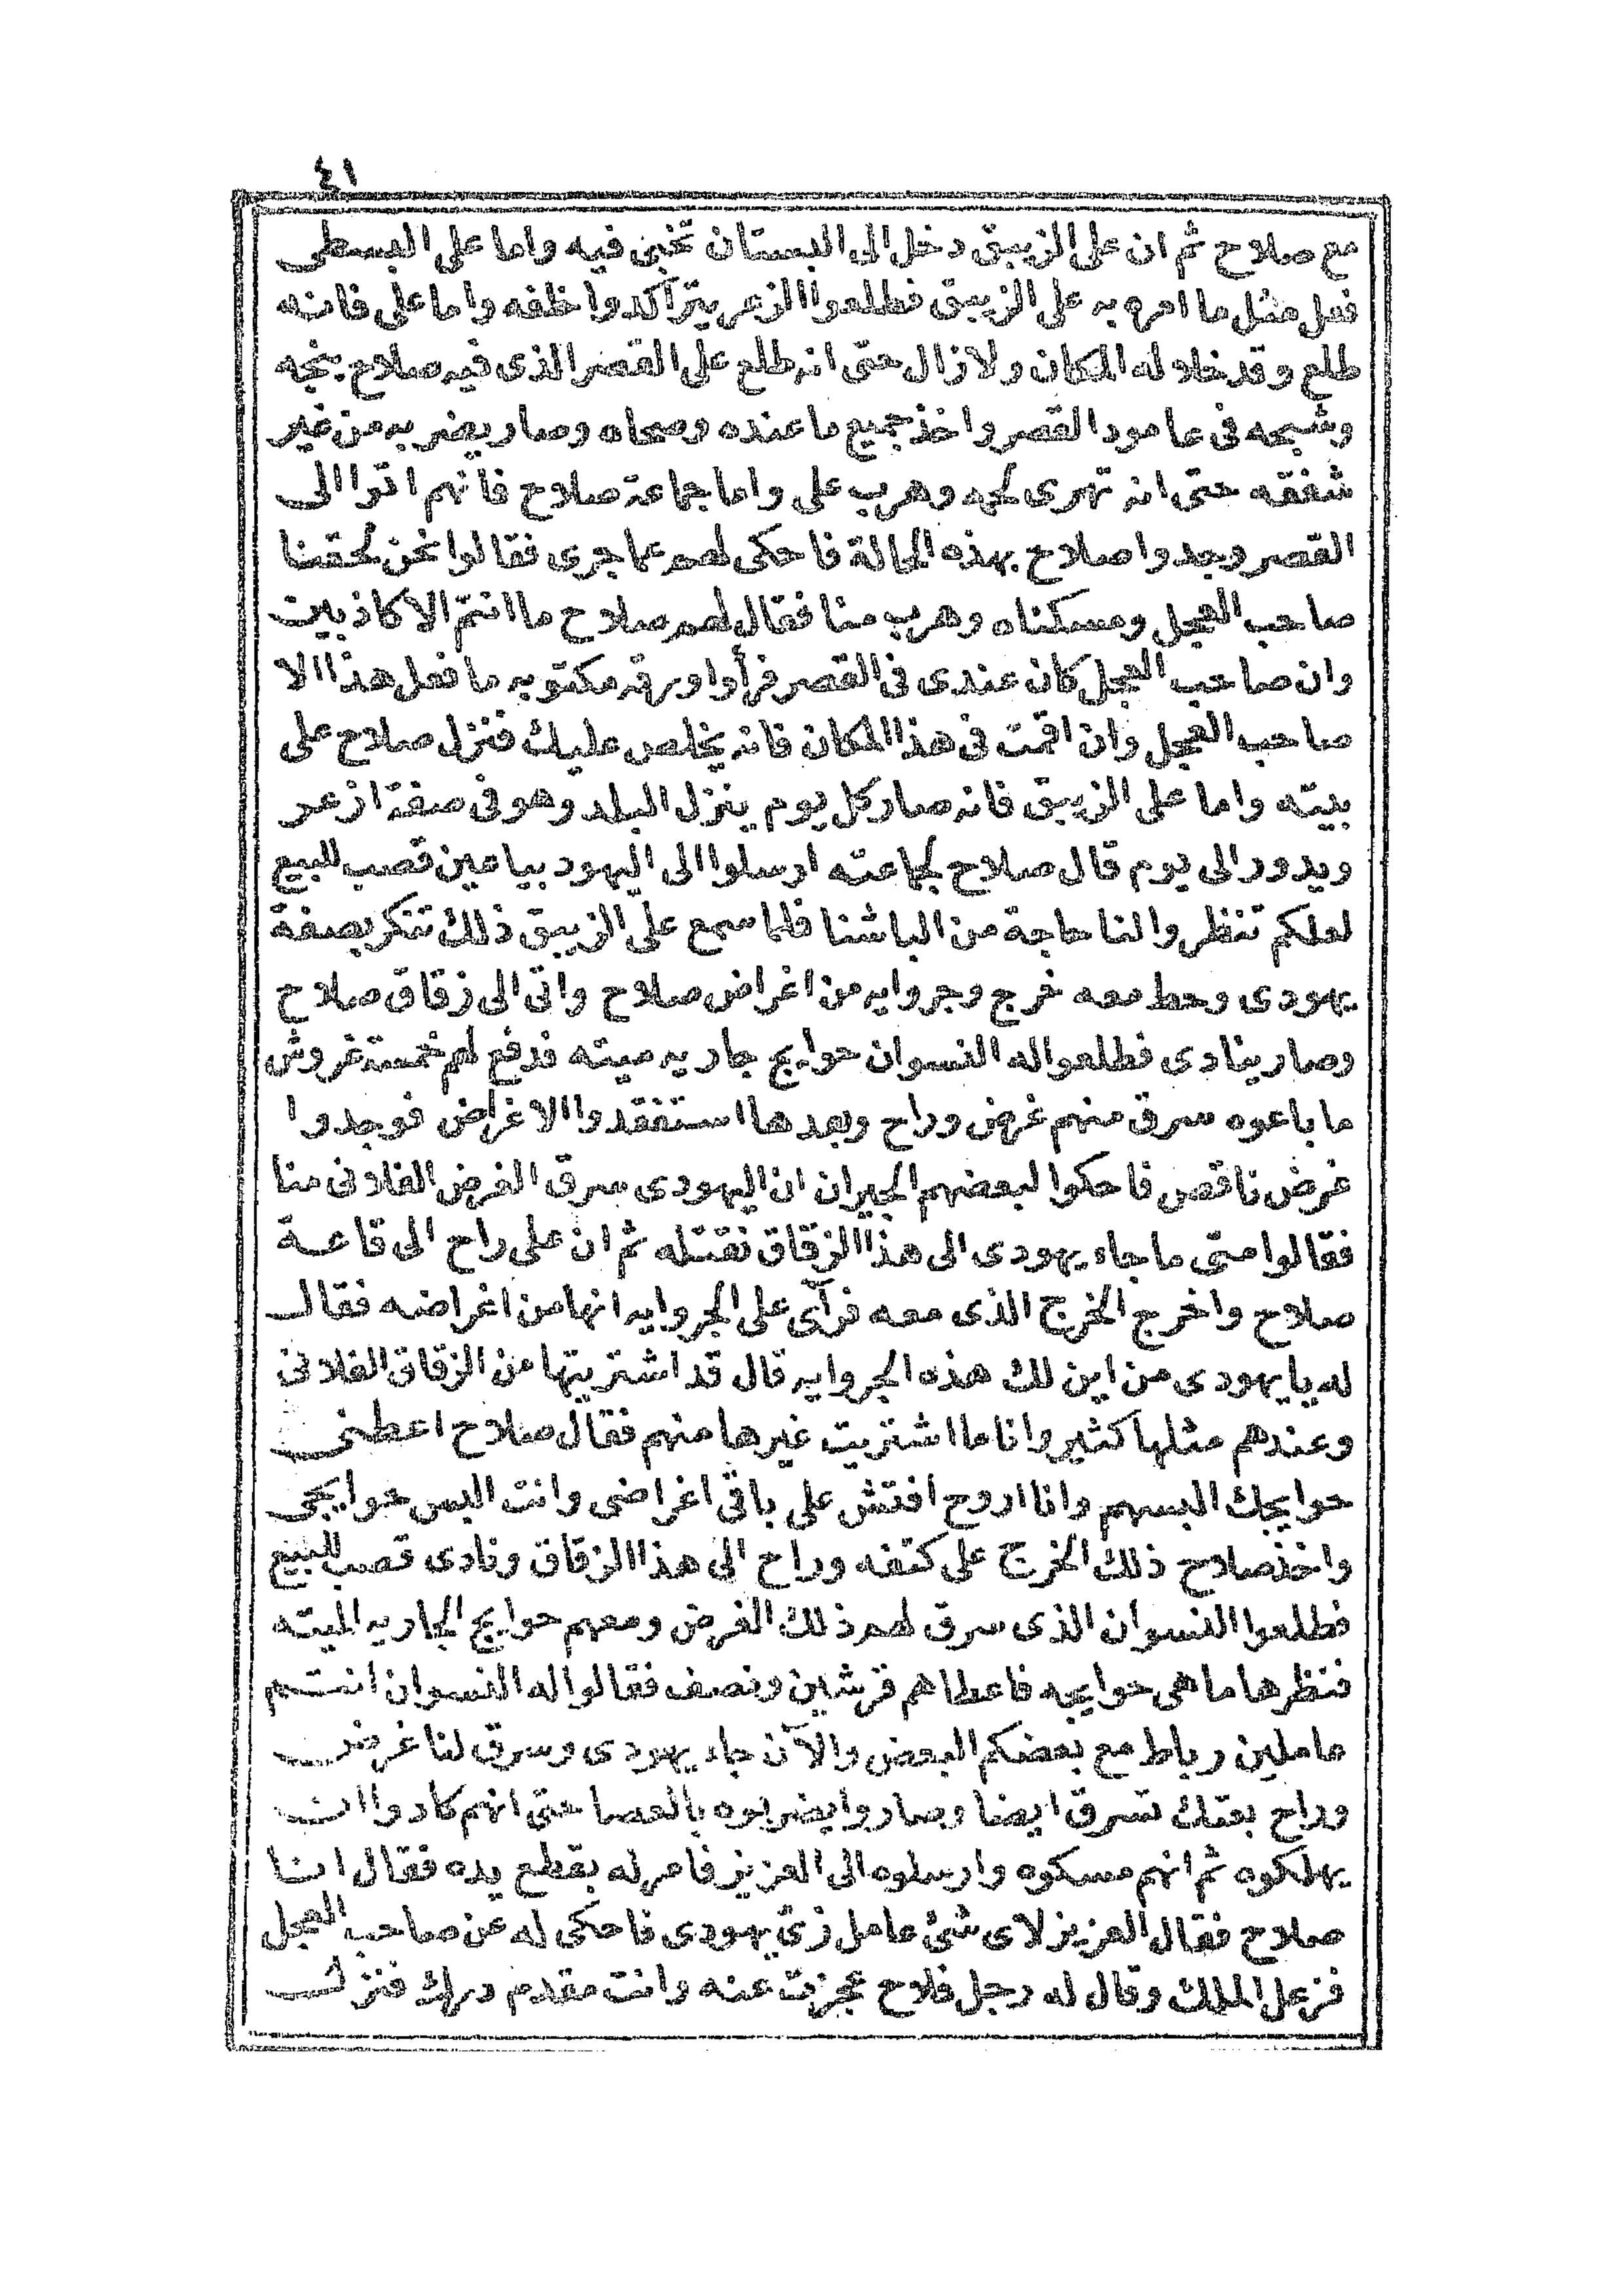 ٤١
مع صلاح ثم ان على الزيبق دخل الى البستان تخبى فيه واما على البسطى
فعل مثل ما امره به على الزيبق فطلعوا الزعر يتراكدوا خلفه واما على فانه
طلع وقد خلا له المكان ولا زال حتى انه طلع على القصر الذى فيه صلاح بنجه
وشبحه فى عامود القصر واخذ جميع ما عنده وصحاه وصار يضربه من غير
شفقه حتى انه تهرى لحمه وهرب على واما جماعة صلاح فانهم اتوا الى
القصر وجدوا صلاح بهذه الحالة فاحكى لهم عما جرى فقالوا نحن لحقنا
صاحب العجل ومسكناه وهرب منا فقال لهم صلاح ما انتم الا كاذبين
وان صاحب العجل كان عندى فى القصر فرأوا ورقه مكتوبه ما فعل هذا الا
صاحب العجل وان اقمت فى هذا المكان فانه يخلص عليك فنزل صلاح على
بيته واما على الزيبق فانه صار كل يوم ينزل البلد وهو فى صفة ازعر
ويدور الى يوم قال صلاح لجماعته ارسلوا الى اليهود بياعين قصب للبيع
لعلكم تنظروا لنا حاجة من الباشنا فلما سمع على الزيبق ذلك تنكر بصفة
يهودى وحط معه خرج وجروايه من اغراض صلاح واتى الى زقاق صلاح
وصار ينادى فطلعوا له النسوان حوايج جاريه ميته فدفع لهم خمسة غروش
ما باعوه سرق منهم غرض وراح وبعدها استفقدوا الاغراض فوجدوا
غرض ناقص فاحكوا لبعضهم الجيران ان اليهودى سرق الغرض الفلانى منا
فقالوا متى ما جاء يهودى الى هذا الزقاق نقتله ثم ان على راح الى قاعة
صلاح واخرج الخرج الذى معه فرآى على الجروايه انها من اغراضه فقال
له يا يهودى من اين لك هذه الجروايه قال قد اشتريتها من الزقاق الفلانى
وعندهم مثلها كثير وانا ما اشتريت غيرها منهم فقال صلاح اعطنى
حوايجك البسهم وانا اروح افتش على باقى اغراضى وانت البس حوايجى
واخذ صلاح ذلك الخرج على كتفه وراح الى هذا الزقاق ونادى قصب للبيع
فطلعوا النسوان الذى سرق لهم ذلك الغرض ومعهم حوايج الجاريه الميته
فنظرها ما هى حوايجه فاعطاهم قرشين ونصف فقالوا له النسوان انتم
عاملين رباط مع بعضكم البعض والآن جاء يهودى وسرق لنا غرض
وراح بعتك تسرق ايضا وصاروا يضربوه بالعصا حتى انهم كادوا ان
يهلكوه ثم انهم مسكوه وارسلوه الى العزيز فامر له بقطع يده فقال انا
صلاح فقال العزيز لاى شئ عامل زى يهودى فاحكى له عن صاحب العجل
فزعل الملك وقال له رجل فلاح عجزت عنه وانت مقدم درك فنزل